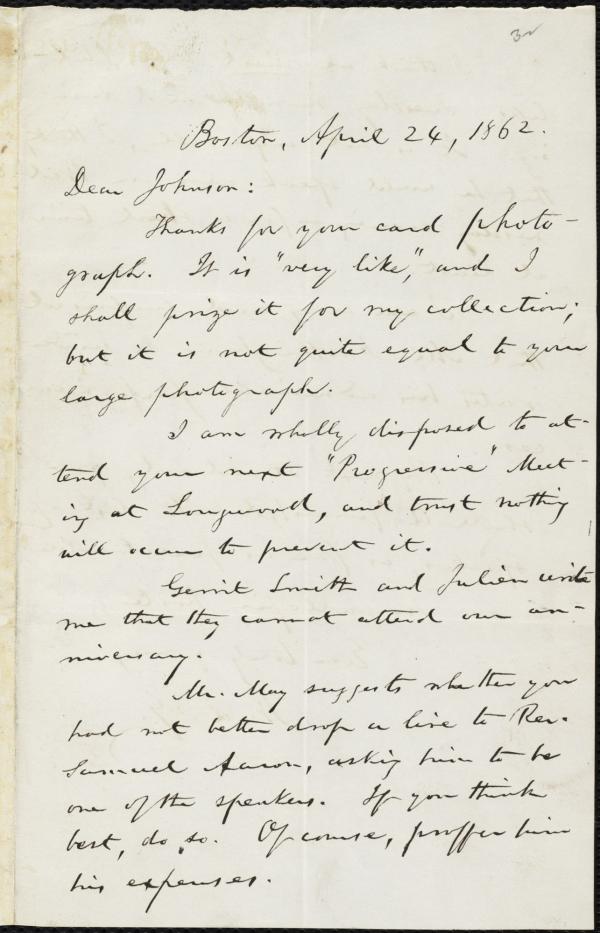 32
Boston, April 24, 1862.
Dear Johnson:
Thanks for your card photo-
graph. It is "very like", and I
shall prize it for my collection;
but it is not quite equal to your
large photograph.
I am wholly disposed to at-
tend your next "Progressive" Meet-
ing at Longwood, and trust nothing
will occur to prevent it.
Gerrit Smith and Julien write
me that they cannot attend our an-
niversary.
Mr. May suggests whether you
had not better drop a line to Rev.
Samuel Aaron, asking him to be
one of the speakers. If you think
best, do so. Of course, proffer him
his expenses.